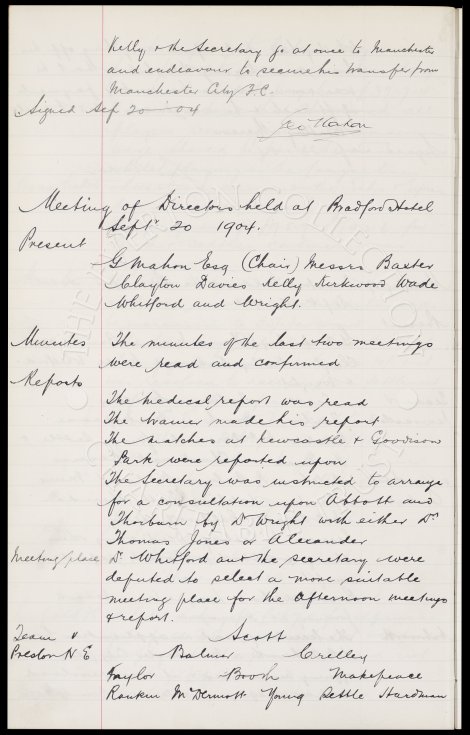 Kelly & the Secretary go at once to Manchester
and endeavour to secure his transfer from
Manchester City F.C.
Signed Sep 20 - 04
Geo Mahon
Meeting of Directors held at Bradford Hotel
Septr 20 1904.
Present
G Mahon Esq (Chair) Messrs Baxter
Clayton Davies Kelly Kirkwood Wade
Whitford and Wright.
Minutes The minutes of the last two meetings
were read and confirmed
Reports
The medical report was read
The trainer made his report
The matches at Newcastle & Goodison
Park were reported upon
The Secretary was instructed to arrange
for a consultation upon Abbott and
Thorburn by Dr Wright with either Drs
Thomas Jones or Alexander
Meeting place Dr Whitford and the secretary were
deputed to select a more suitable
meeting place for the afternoon meetings
& report.
Team v Scott
Preston N E Balmer Crelley
Taylor Booth Makepeace
Rankin McDermott Young Settle Hardman